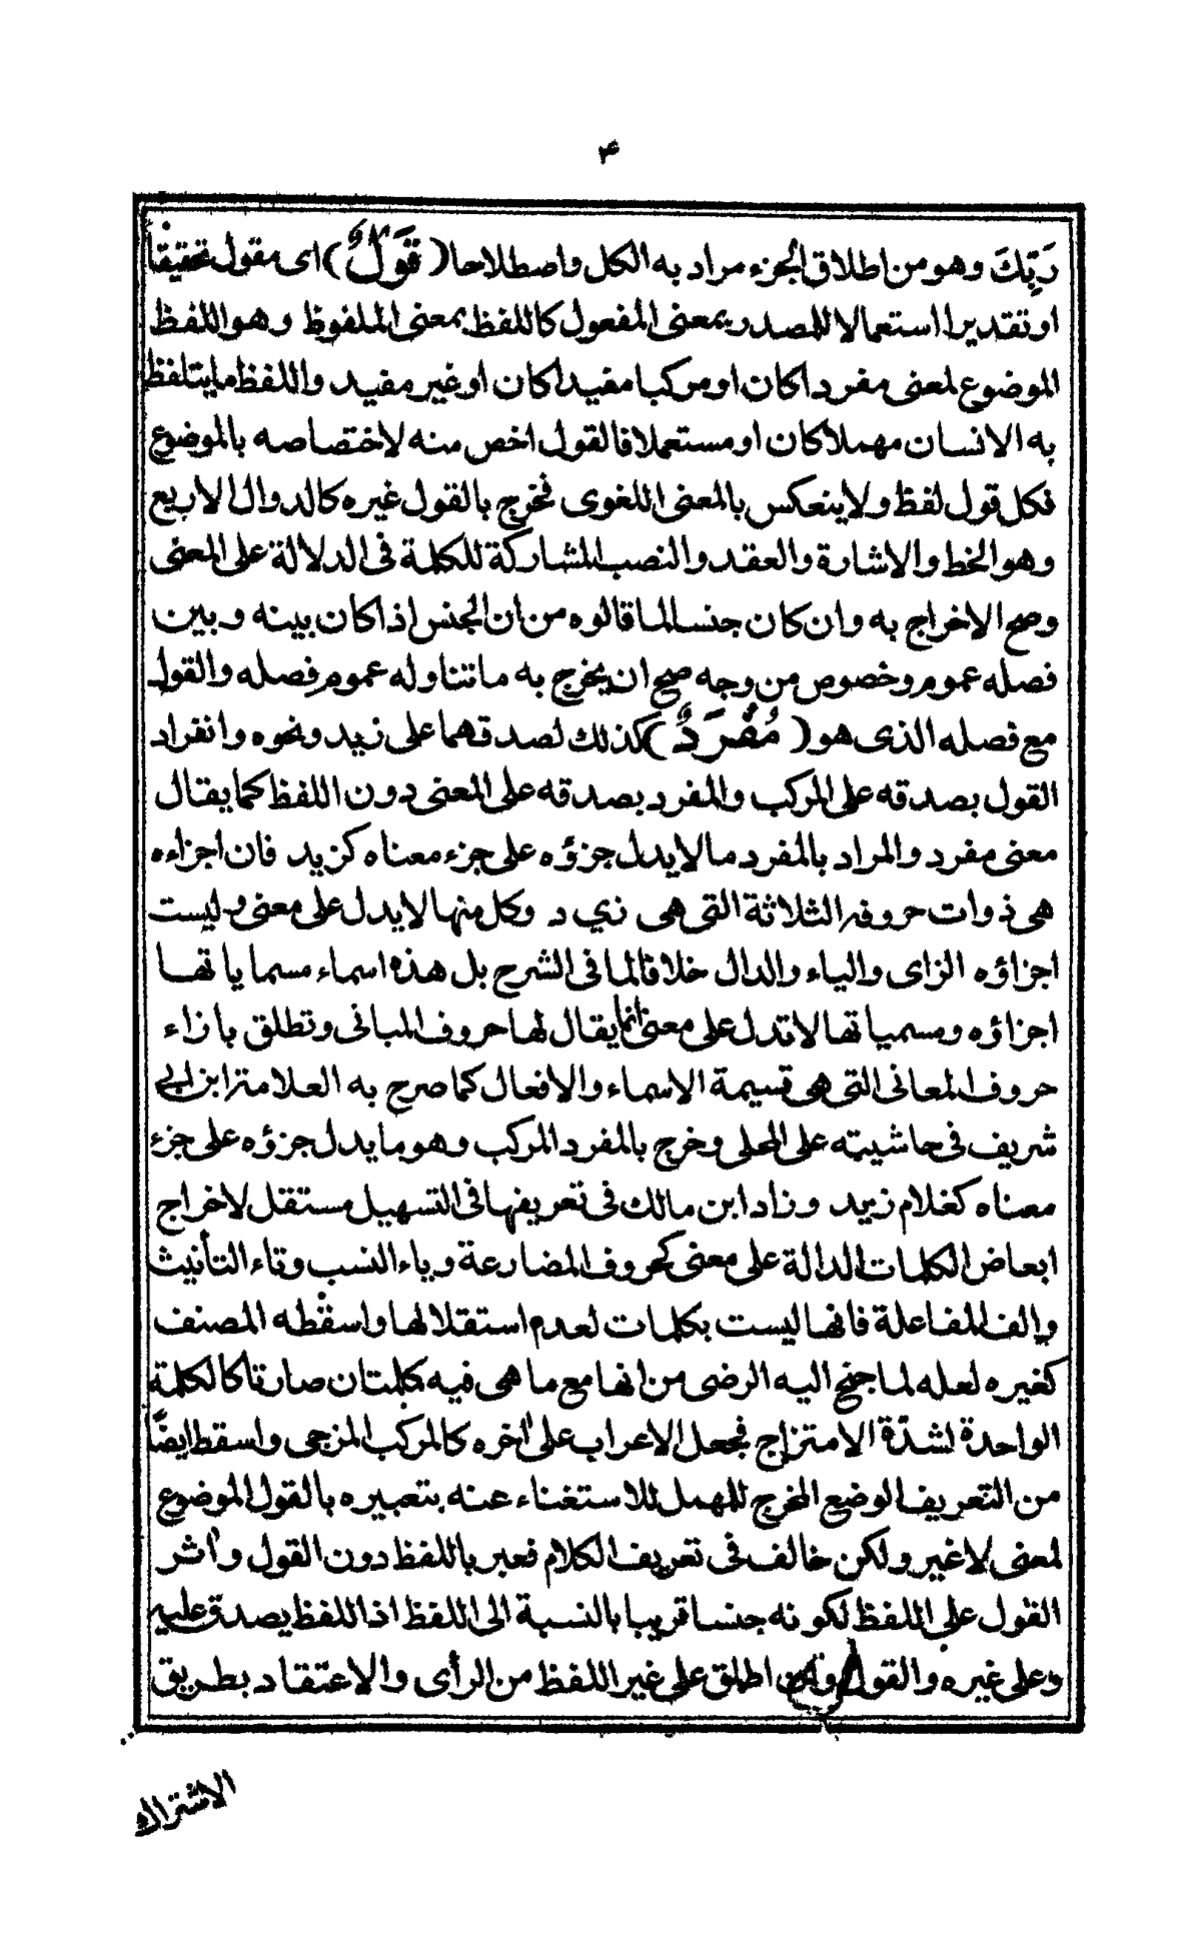 ۴
رَبِّكَ وهو من اطلاق الجزء مراد به الكل واصطلاحا (قَوْلٌ) اى مقول تحقيقًا
او تقديرا استعمالا للمصدر بمعنى المفعول كاللفظ بمعنى الملفوظ وهو اللفظ
الموضوع لمعنى مفردا كان او مركبا مفيدا كان او غير مفيد واللفظ ما يتلفظ
به الانسان مهملا كان او مستعملا فالقول اخص منه لاختصاصه بالموضوع
فكل قول لفظ ولا ينعكس بالمعنى اللغوى فخرج بالقول غيره كالدوال الاربع
وهو الخط والاشارة والعقد والنصب المشاركة للكلمة فى الدلالة على المعنى
وصح الاخراج به وان كان جنسا لما قالوه من ان الجنس اذا كان بينه وبين
فصله عموم وخصوص من وجه صح ان يخرج به ما تناوله عموم فصله والقول
مع فصله الذى هو (مُفْرَدٌ) كذلك لصدقهما على زيد ونحوه وانفراد
القول بصدقه على المركب والمفرد بصدقه على المعنى دون اللفظ كما يقال
معنى مفرد والمراد بالمفرد ما لا يدل جزؤه على جزء معناه كزيد فان اجزاءه
هى ذوات حروفه الثلاثة التى هى زي د وكل منها لا يدل على معنى وليست
اجزاؤه الزاى والياء والدال خلافا لما فى الشرح بل هذه اسماء مسماياتها
اجزاؤه ومسمياتها لا تدل على معنى انما يقال لها حروف المبانى وتطلق بازاء
حروف المعانى التى هى قسيمة الاسماء والافعال كما صرح به العلامة ابن ابى
شريف فى حاشيته على المحلى وخرج بالمفرد المركب وهو ما يدل جزؤه على جزء
معناه كغلام زيد وزاد ابن مالك فى تعريفها فى التسهيل مستقل لاخراج
ابعاض الكلمات الدالة على معنى كحروف المضارعة وياء النسب وتاء التأنيث
والف المفاعلة فانها ليست بكلمات لعدم استقلالها واسقطه المصنف
كغيره لعله لما جنح اليه الرضى من انها مع ما هى فيه كلمتان صارتا كالكلمة
الواحدة لشدّة الامتزاج فجعل الاعراب على اخره كالمركب المزجى واسقط ايضًا
من التعريف الوضع المخرج للمهمل للاستغناء عنه بتعبيره بالقول الموضوع
لمعنى لا غير ولكن خالف فى تعريف الكلام فعبر باللفظ دون القول واثر
القول على اللفظ لكونه جنسا قريبا بالنسبة الى اللفظ اذ اللفظ يصدق عليه
وعلى غيره والقول وان اطلق على غير اللفظ من الرأى والاعتقاد بطريق
الاشتراك